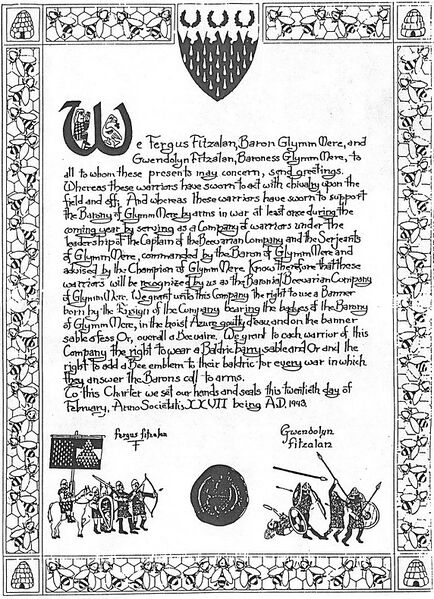 We Fergus Fitzalan, Baron Glymm Mere, and
Gwendolyn Fitzalan, Baroness Glymm Mere, to
all to whom these presents may concern, send greetings.
Whereas these warriors have sworn to act with chivalry upon the
field and off. And whereas these warriors have sworn to support
the Barony of Glymm Mere by arms in war at least once during the
coming year by serving as a Company of warriors under the
leadership of the Captain of the Beewarian Company and the Serjeants
of Glymm Mere, commanded by the Baron of Glymm Mere and
advised by the Champion of Glymm Mere. Know therefore that these
warriors will be recognized by us as the Baronial Beewarian Company
of Glymm Mere. We grant unto this Company the right to use a Banner
born by the Ensign of the Company bearing the badges of the Barony
of Glymm Mere, in the hoist Azure goutty d'eau and on the banner
sable a fess Or, overall a Beewarre. We grant to each warrior of this
Company the right to wear a Baldric barry sable and Or and the
right to add a Bee emblem to their baldric for every war in which
they answer the Barons call to arms.
To this Charter we set our hands and seals this twentieth day of
February, Anno Societatis, XXVII being A.D. 1993.
fergus fitzalan
Gwendolyn
fitzalan